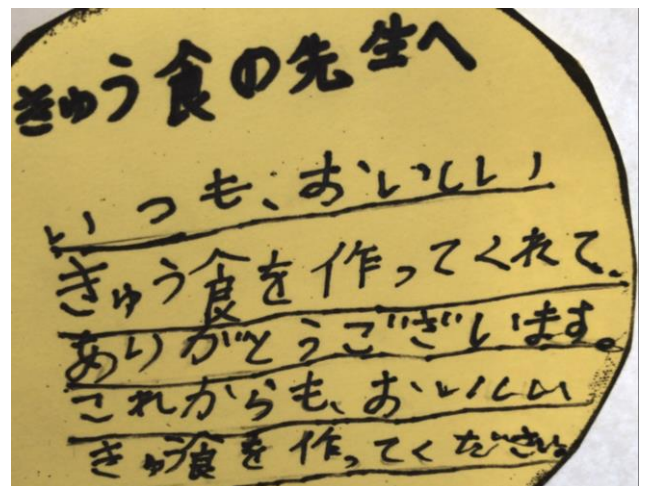 きゅう食の先生へ
いつも、おいしい
きゅう食を作ってくれて、
ありがとうございます。
これからも、おいしい
きゅう食を作ってください。